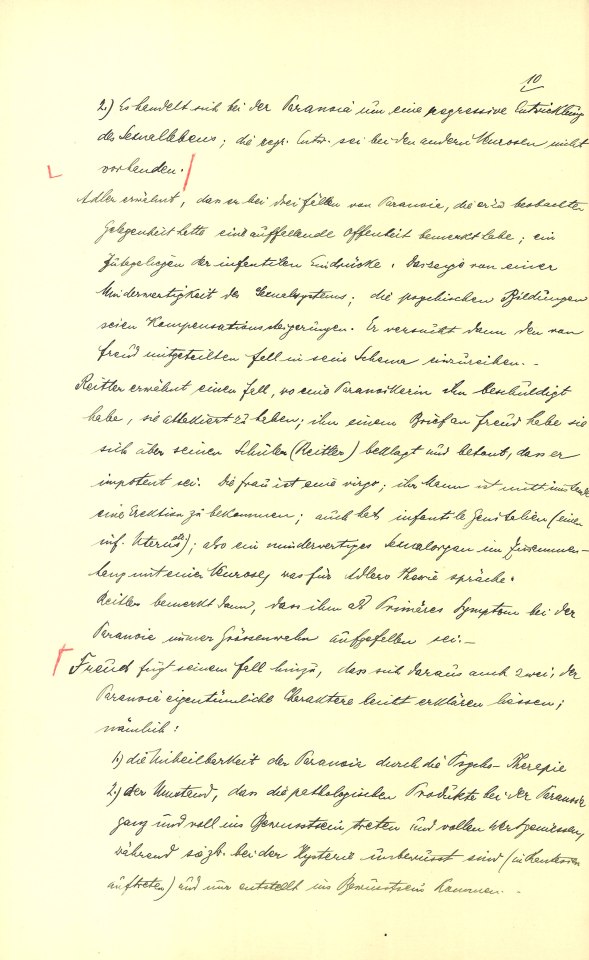 10
2.) Es handelt sich bei der Paranoia um eine progressive Entwicklung
des Sexuallebens; die regr. Entw. sei bei den andern Neurosen nicht
vorhanden.
Adler erwähnt, dass er bei drei Fällen von Paranoia, die er zu beobachten
Gelegenheit hatte eine auffallende Offenheit bemerkt habe; ein
der infantilen Eindrücke. Das zeige von einer
Minderwertigkeit des Sexualsystems; die psychischen Bildungen
seien Kompensationssteigerungen. Er versucht dann den von
Freud mitgeteilten Fall in sein Schema einzureihen. -
Reitler erwähnt einen Fall, wo eine Paranoikerin ihn beschuldigt
habe, sie attakiert zu haben; in einem Brief an Freud habe sie
sich über seinen Schüler (Reitler) beklagt und betont, dass er
impotent sei. Die Frau ist eine virgo; ihr Mann ist nicht imstande
eine Erektion zu bekommen; auch hat infantile Genitalien (eine
inf. Uterus); also ein minderwertiges Sexualorgan im Zusammen-
hang mit einer Neurose, was für Adlers Theorie spräche.
Reitler bemerkt dann, dass ihm als Primäres Symptom bei der
Paranoia immer Grössenwahn aufgefallen sei. -
Freud fügt seinem Fall hinzu, dass sich daraus auch zwei, der
Paranoia eigentümliche Charaktere leicht erklären lassen;
nämlich:
1.) die Unheilbarkeit der Paranoia durch die Psycho-Therapie
2.) der Umstand, dass die pathologischen Produkte bei der Paranoia
ganz und voll ins Bewusstsein treten und vollen Wert geniessen,
während sie zb. bei der Hysterie unbewusst sind (in
auftreten) und nur entstellt ins Bewusstsein kommen. -